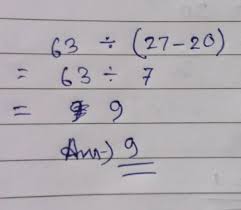 63 ÷ (27-20)
= 63 ÷ 7
= 9
Ans→ 9